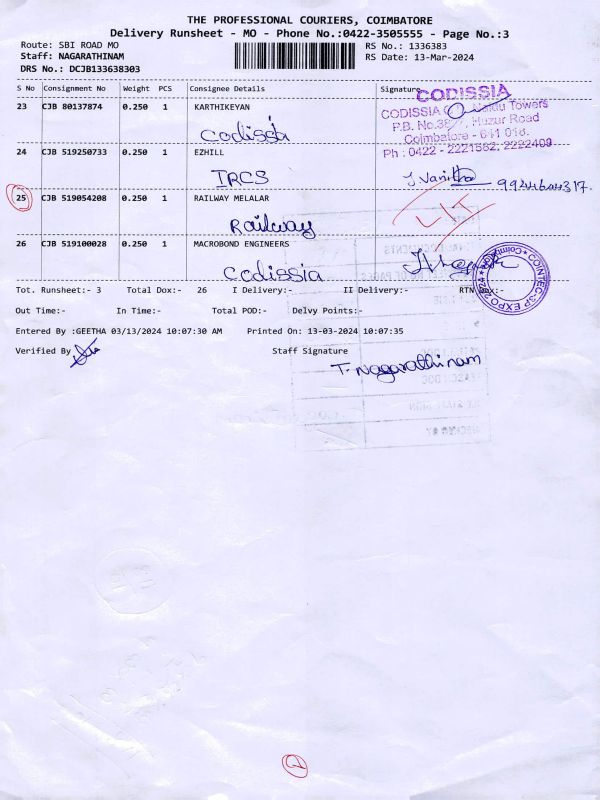 THE PROFESSIONAL COURIERS, COIMBATORE
Delivery Runsheet - MO - Phone No.:0422-3505555 - Page No.:3
Route: SBI ROAD MO RS No.: 1336383
Staff: NAGARATHINAM RS Date: 13-Mar-2024
DRS No.: DCJB133638303
S No Consignment No Weight PCS Consignee Details Signature
CODISSIA
23 CJB 80137874 0.250 1 KARTHIKEYAN
CODISSIA Towers
P.B. No. Huzur Road
Codissia
Coimbatore - 641 018.
24 CJB 519250733 0.250 1 EZHILL
Ph : 0422 - 2221582, 2222409
IRCS
25 CJB 519054208 0.250 1 RAILWAY MELALAR
Railway
26 CJB 519100028 0.250 1 MACROBOND ENGINEERS
Codissia
COINTEC-SP EXPO 2024
Coimbatore
Tot. Runsheet:- 3 Total Dox:- 26 I Delivery:- II Delivery:- RTN Dox:-
Out Time:- In Time:- Total POD:- Delvy Points:-
Entered By :GEETHA 03/13/2024 10:07:30 AM Printed On: 13-03-2024 10:07:35
Verified By Staff Signature
T. Nagarathinam